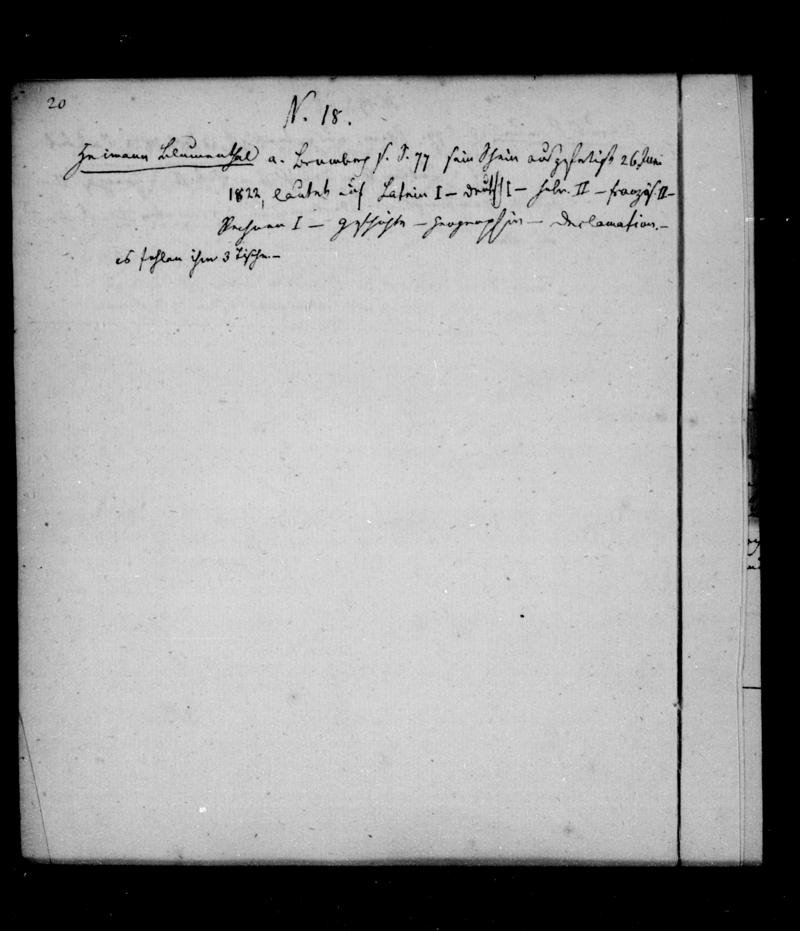 20
N. 18.
Heimann Blumenthal a. Bromberg s. S. 77 sein Schein ausgefertigt 26 Juni
1822, lautet auf Latein I – deutsch I – hebr. II – französ II –
Rechnen I – Geschichte – Geographie – Declamation. –
es fehlen ihm 3 Tische. –